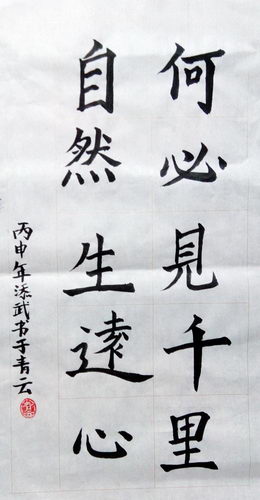 何必見千里
自然生遠心
丙申年添武书于青云